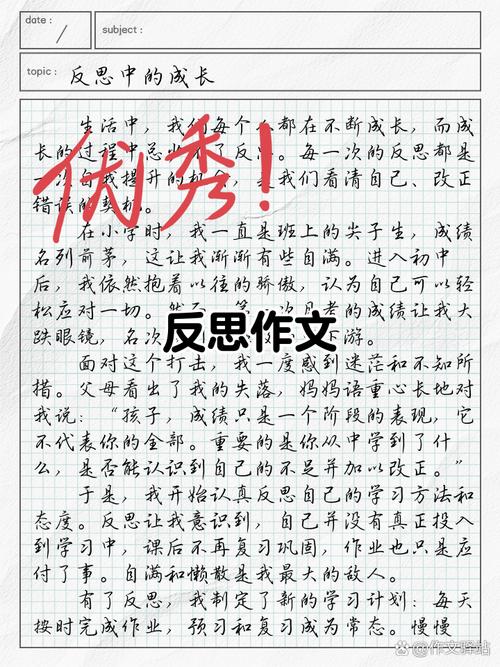 date:
subject:
topic: 反思中的成长
生活中，我们每个人都在不断成长，而成
长的过程中总少不了反思。每一次的反思都是
一次自我提升的机会，是我们看清自己、改正
错误的契机。
优秀！
在小学时，我一直是班上的尖子生，成绩
名列前茅，这让我渐渐有些自满。进入初中
后，我依然抱着以往的骄傲，认为自己可以轻
松应对一切。然而，第一次月考的成绩让我大
跌眼镜，名次
下游。
反思作文
面对这个打击，我一度感到迷茫和不知所
措。父母看出了我的失落，妈妈语重心长地对
我说：“孩子，成绩只是一个阶段的表现，它
不代表你的全部。重要的是你从中学到了什
么，是否能认识到自己的不足并加以改正。”
于是，我开始认真反思自己的学习方法和
态度。反思让我意识到，自己并没有真正投入
到学习中，课后不再复习巩固，作业也只是应
付了事。自满和懒散是我最大的敌人。
有了反思，我制定了新的学习计划：每天
按时完成作业，预习和复习成为常态。慢慢
@作文驿站